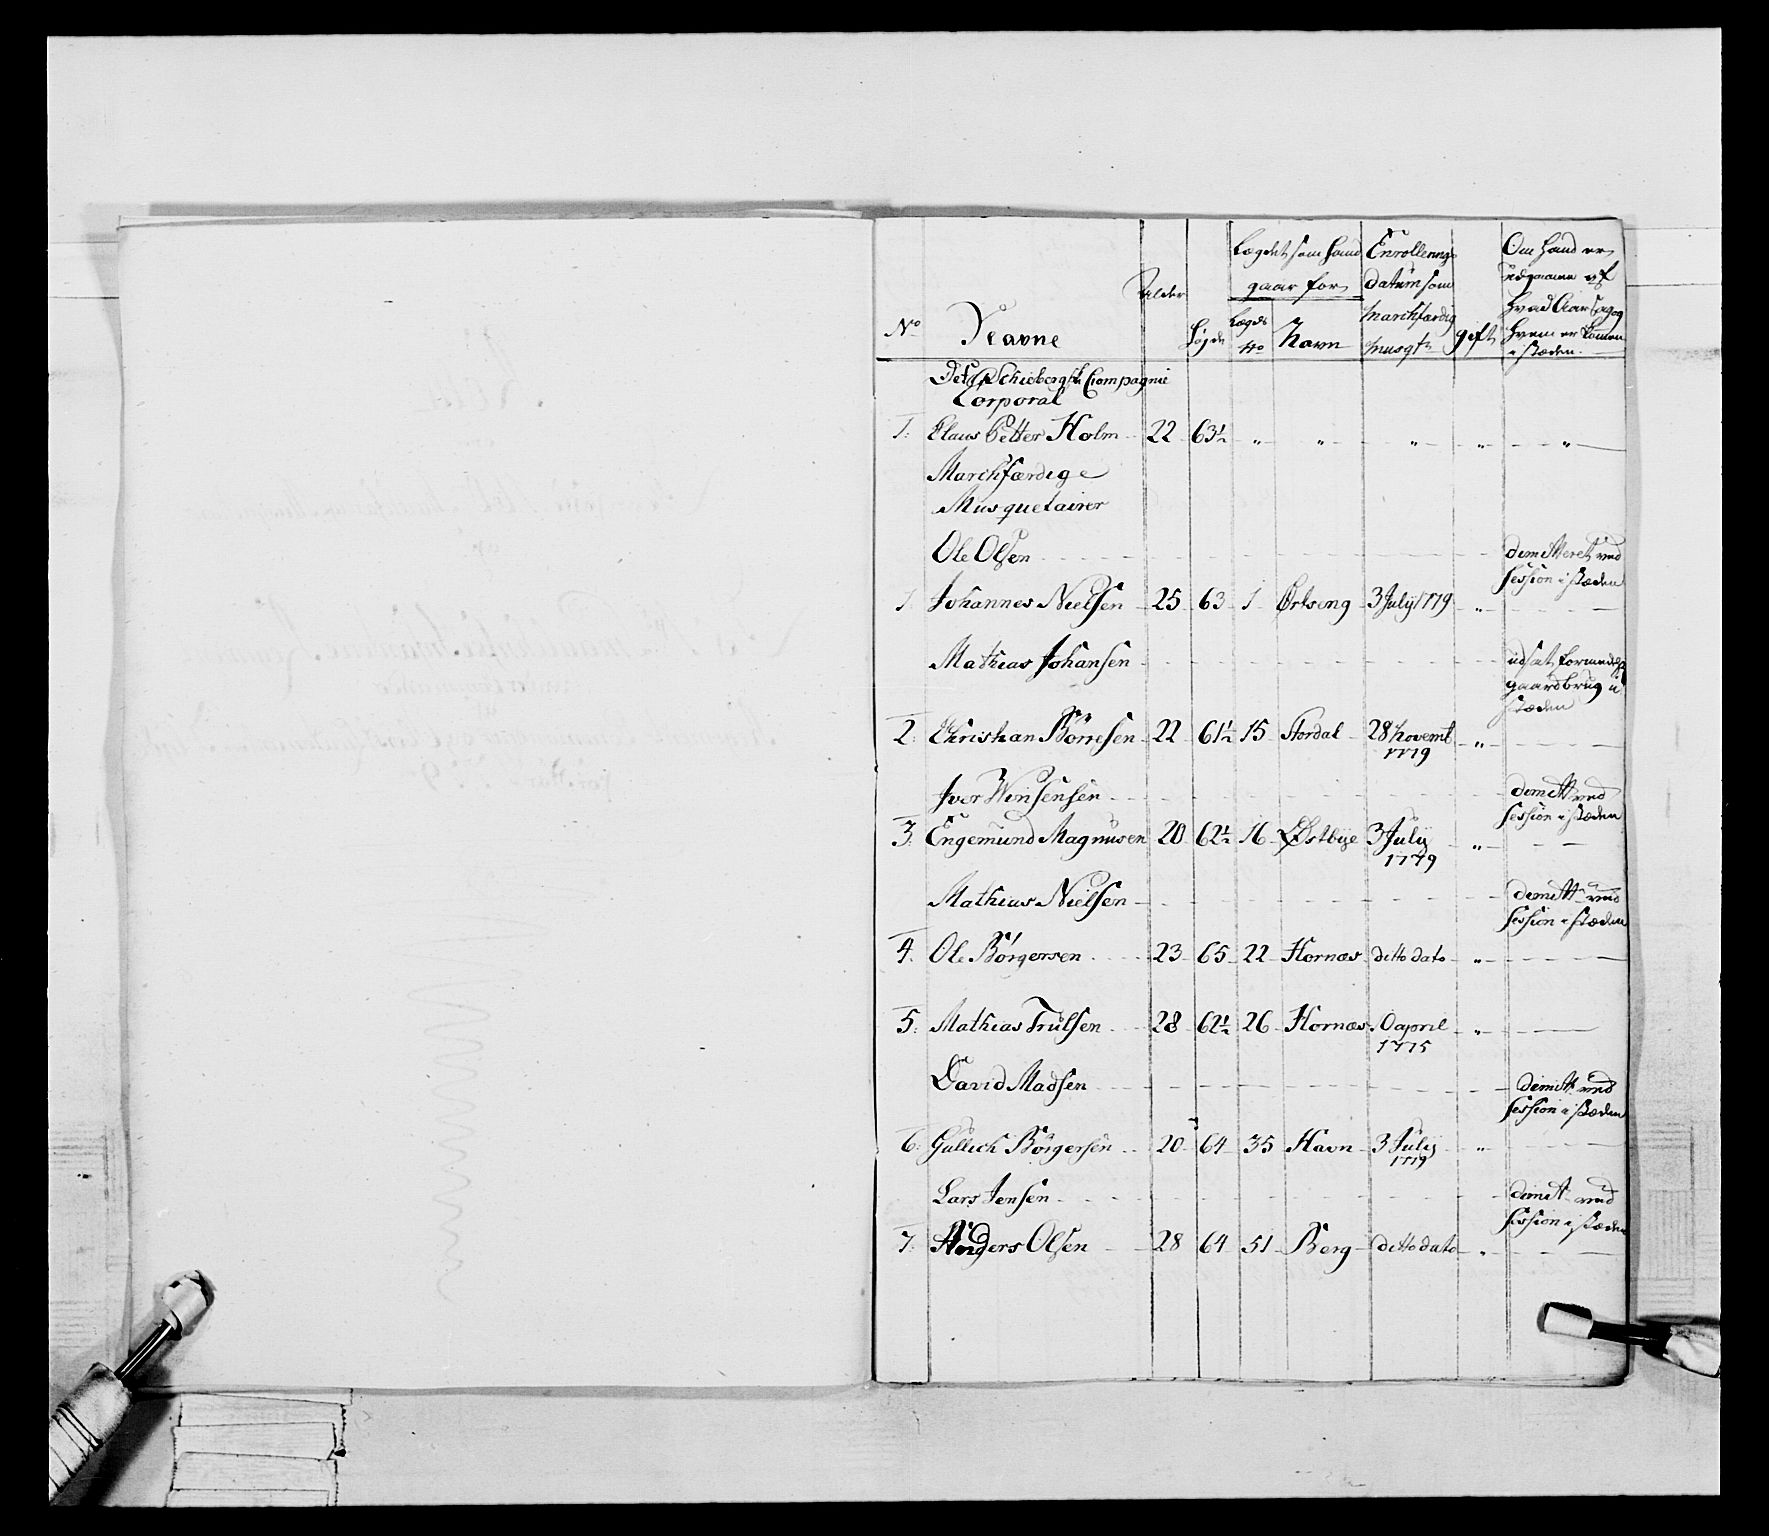 No
Navne
Alder
Høyde
Lægdet som hand
gaar for
Lægds
No
Navn
Enrollerings
datum som
Marchfærdig
musqt
gift
Om hand er
udgaaen af
hvad Aarsag og
hvem er kommen
i stæden.
Det Schiebergske Compagnie
Corporal
1. Claus Petter Holm 22 63½ " " " " "
Marchfærdige
Musquetairer
Ole Olsen demitteret ved
Session i stæden
1 Johannes Nielsen 25 63 1 Ørlseng 3 July 1779 "
Mathias Johansen udsat formedelst
gaardbrug i
stæden
2. Christian Børresen 22 61½ 15 Stordal 28 Novemb "
1779
Iver Wensensen demitt ved
Session i stæden
3. Engemund Magnusen 20 62½ 16 Østbye 3 July "
1779
Mathias Nielsen demitt ved
Session i stæden
4. Ole Børgersen 23 65 22 Hornæs ditto dato "
5. Mathias Trulsen 28 62½ 26 Hornæs april "
1775
David Madsen demitt ved
Session i stæden
6. Gullich Børgersen 20 64 35 Havn 3 July "
1779
Lars Jensen demitt ved
Session i stæden
7. Anders Olsen 28 64 51 Berg ditto dato "